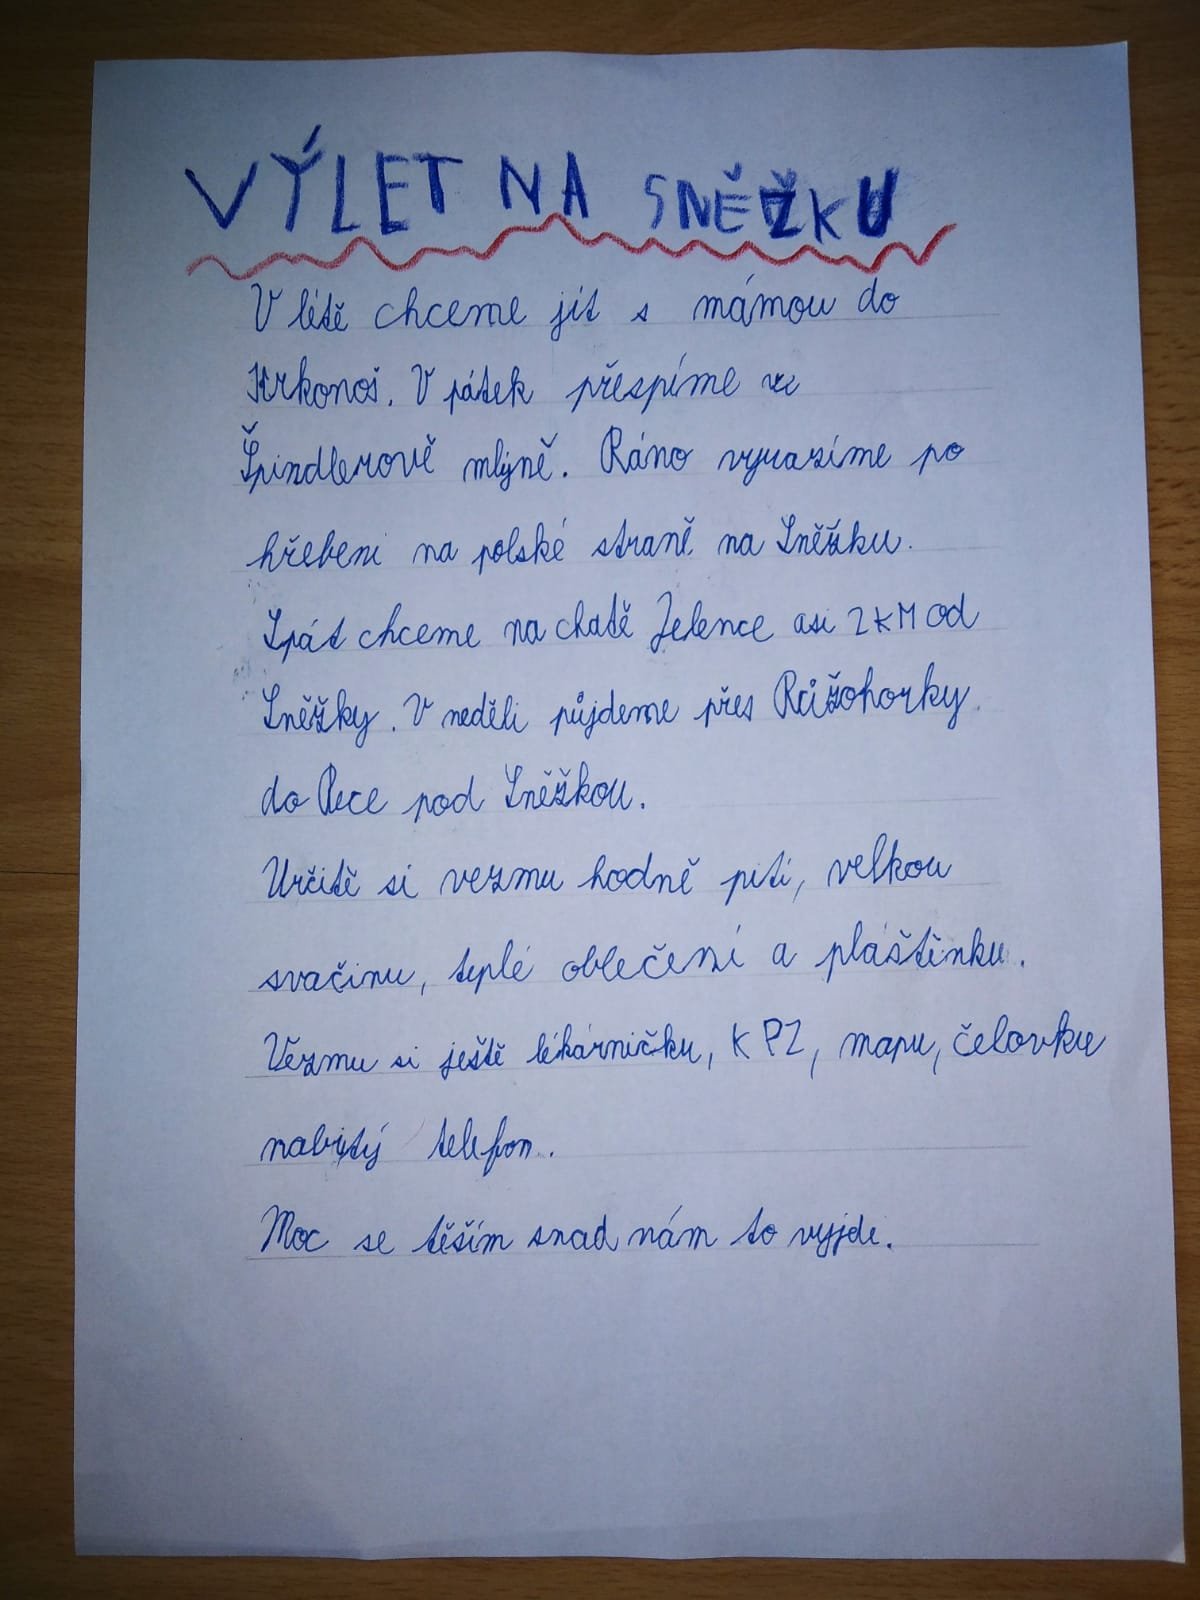 VÝLET NA SNĚŽKU
V létě chceme jít s mámou do
Krkonoš. V pátek přespíme ve
Špindlerově mlýně. Ráno vyrazíme po
hřebeni na polské straně na Sněžku.
Spát chceme na chatě Jelence asi 2 KM od
Sněžky. V neděli půjdeme přes Růžohorky
do Pece pod Sněžkou.
Určitě si vezmu hodně pití, velkou
svačinu, teplé oblečení a pláštěnku.
Vezmu si ještě lékárničku, KPZ, mapu, čelovku
nabitý telefon.
Moc se těším snad nám to vyjde.